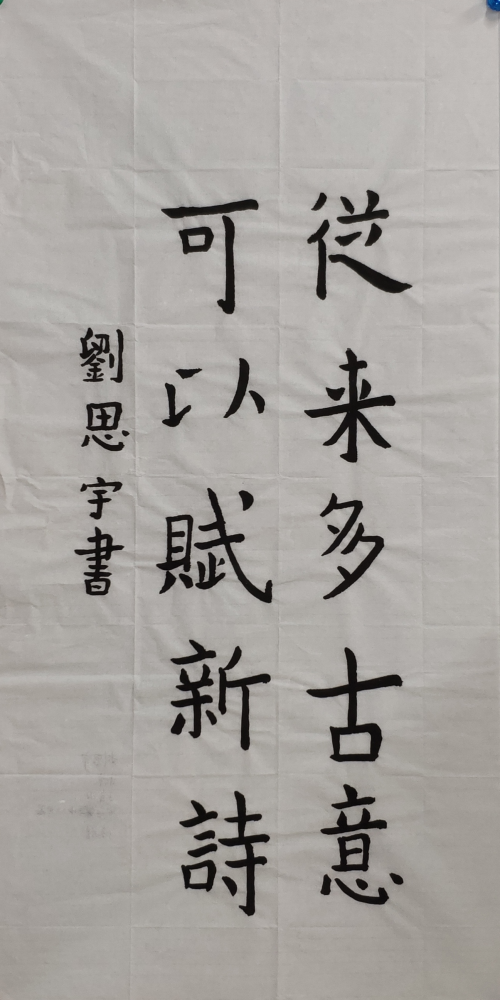 從来多古意
可以賦新詩
劉思宇書